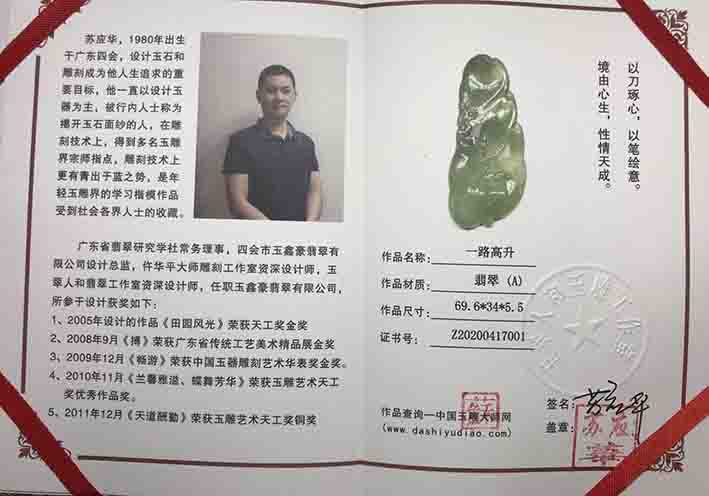 苏应华，1980年出生
于广东四会，设计玉石和
雕刻成为他人生追求的重
要目标，他一直以设计玉
器为主，被行内人士称为
揭开玉石面纱的人，在雕
刻技术上，得到多名玉雕
界宗师指点，雕刻技术上
更有青出于蓝之势，是年
轻玉雕界的学习楷模作品
受到社会各界人士的收藏。
广东省翡翠研究学社常务理事，四会市玉鑫豪翡翠有
限公司设计总监，仵华平大师雕刻工作室资深设计师，玉
翠人和翡翠工作室资深设计师，任职玉鑫豪翡翠有限公司，
所参于设计获奖如下：
1、2005年设计的作品《田园风光》荣获天工奖金奖
2、2008年9月《搏》荣获广东省传统工艺美术精品展金奖
3、2009年12月《畅游》荣获中国玉器雕刻艺术华表奖金奖。
4、2010年11月《兰馨雅溢、蝶舞芳华》荣获玉雕艺术天工
奖优秀作品奖。
5、2011年12月《天道酬勤》荣获玉雕艺术天工奖铜奖
以刀琢心，以笔绘意。
境由心生，性情天成。
作品名称：一路高升
作品材质：翡翠（A）
作品尺寸：69.6*34*5.5
证书号：Z20200417001
签名：苏应华
作品查询—中国玉雕大师网
(www.dashiyudiao.com)
盖章：
苏应
华